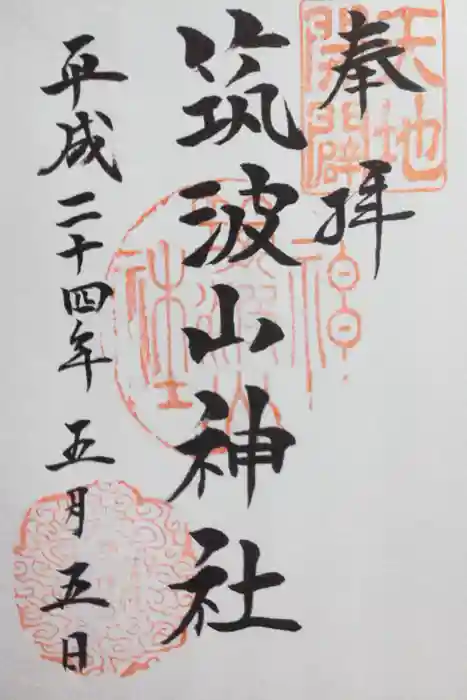 奉拝
天地開闢
筑波山神社
平成二十四年五月五日